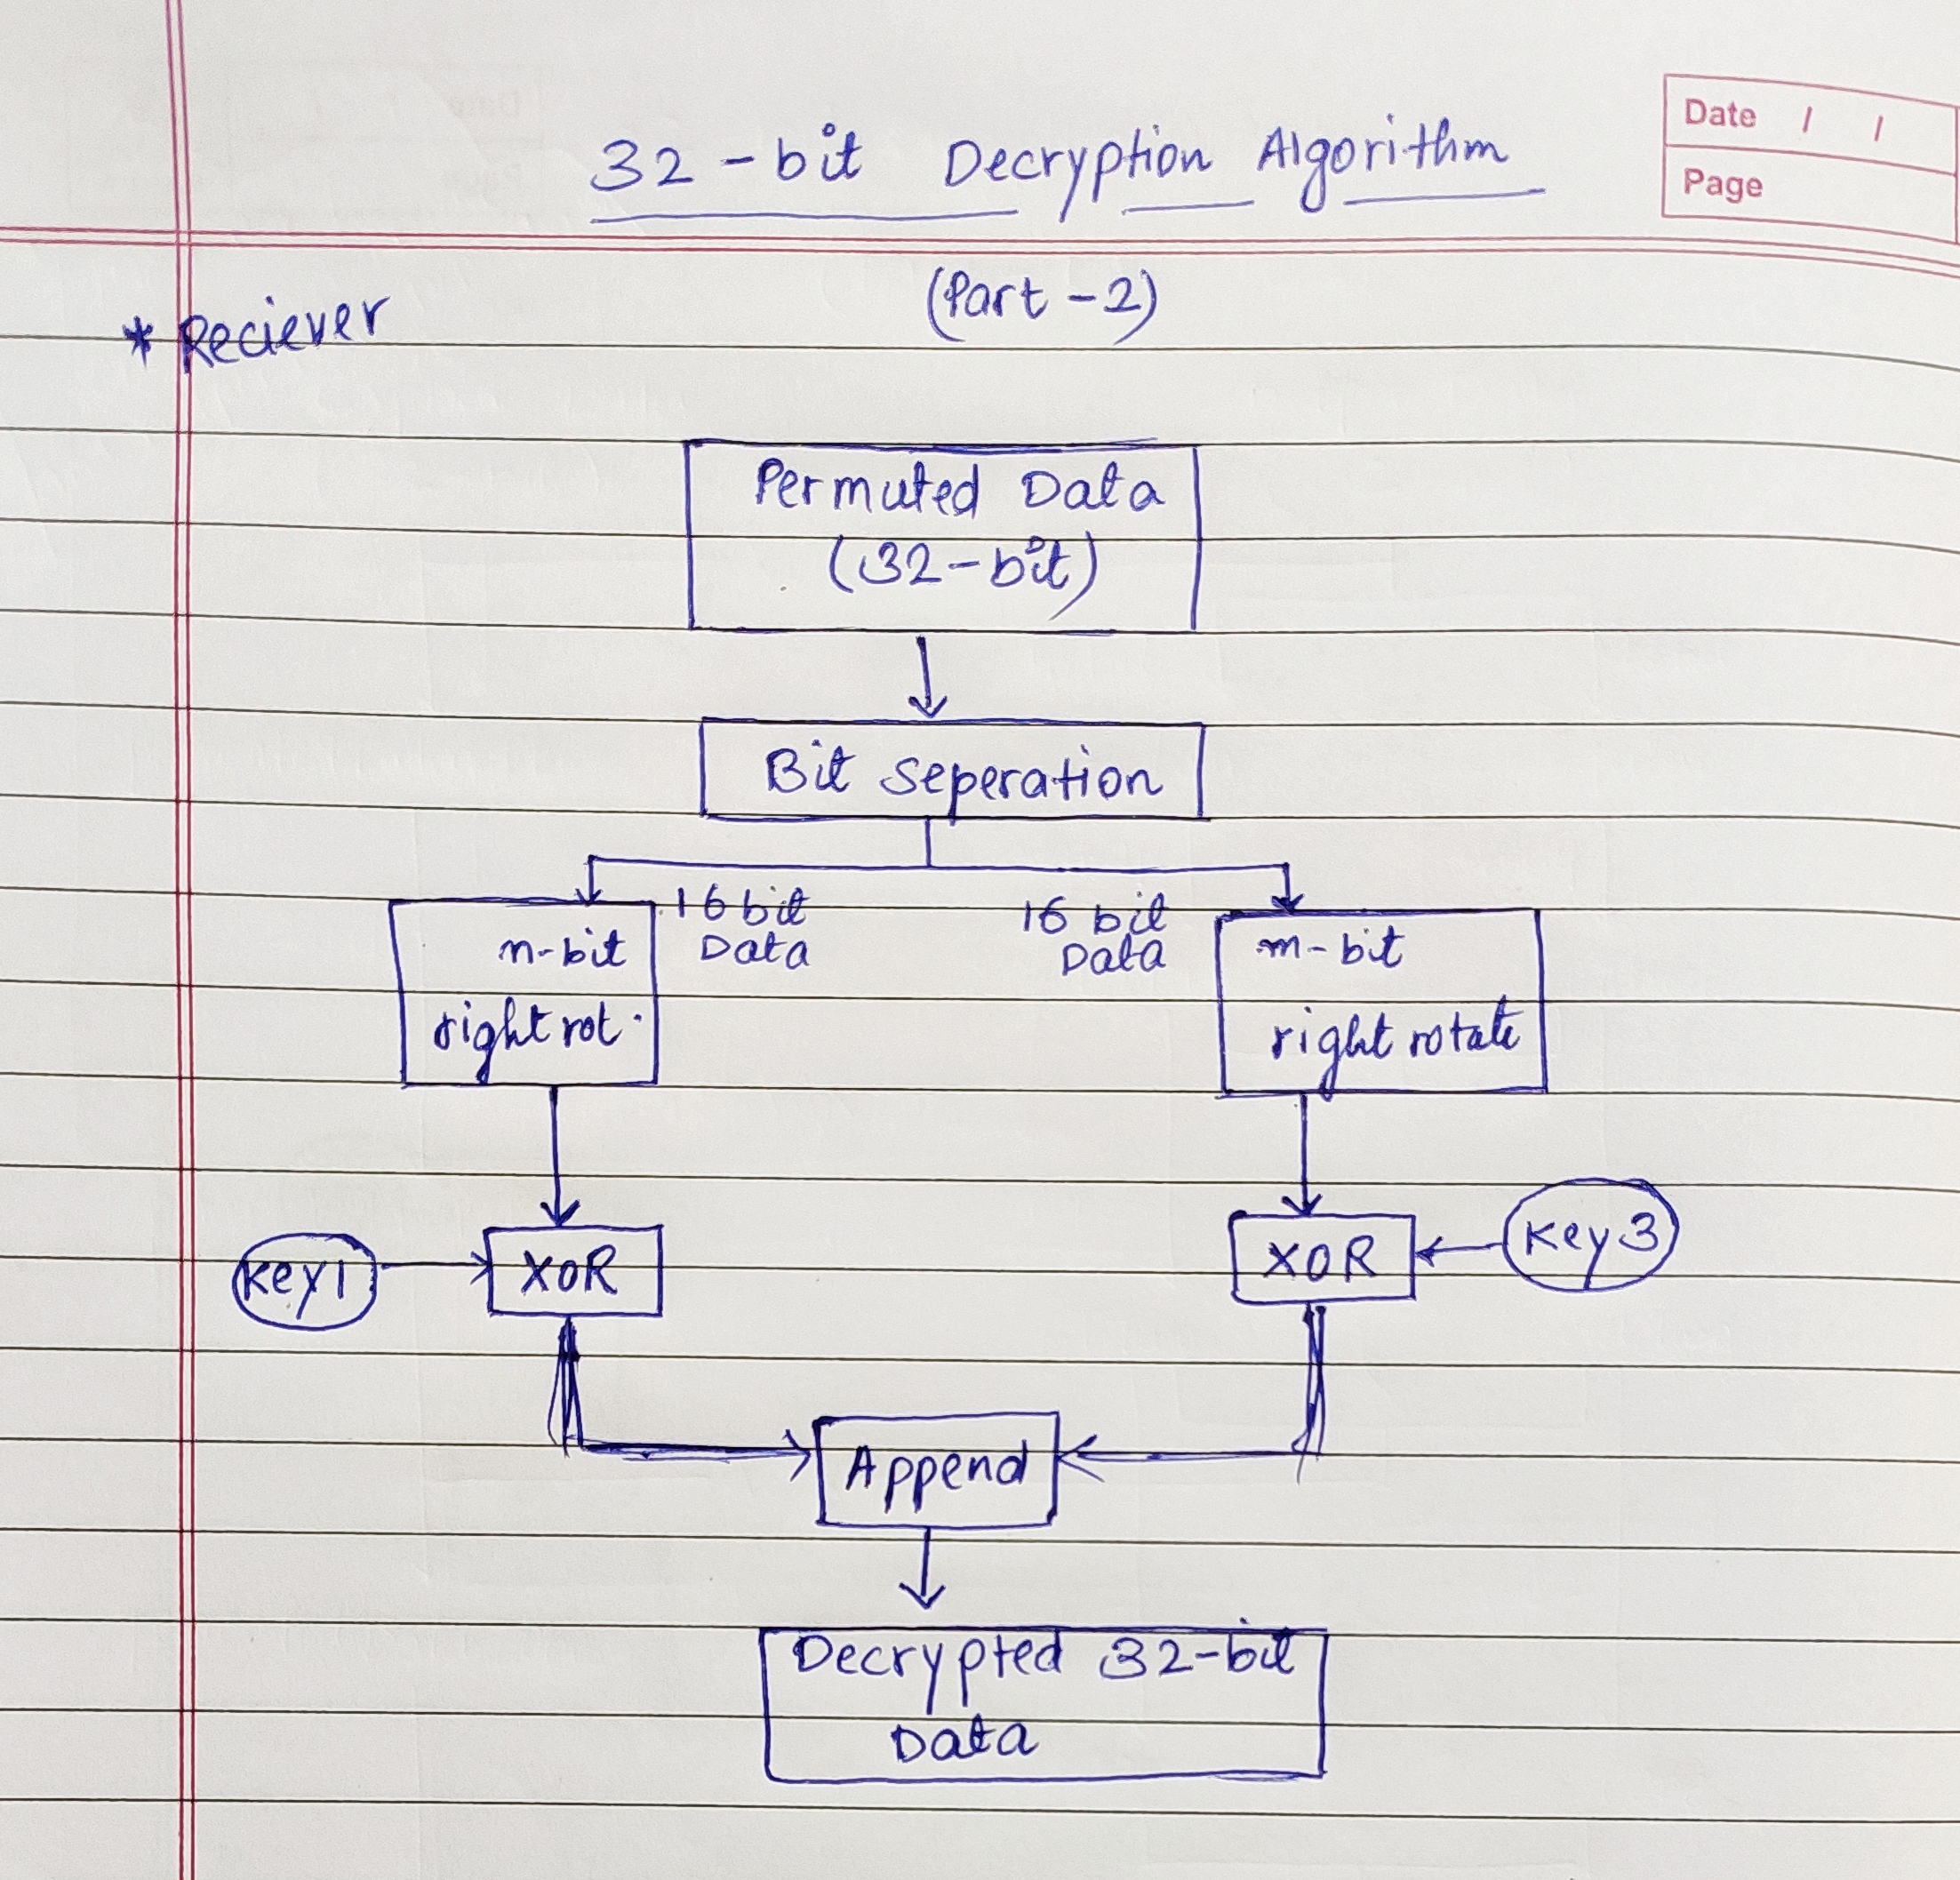 Date / /
Page
32-bit Decryption Algorithm
(Part-2)
* Reciever
Permuted Data
(32-bit)
Bit seperation
16 bit
Data
16 bit
Data
n-bit
right rot.
m-bit
right rotate
Key1
XOR
XOR
Key3
Append
Decrypted 32-bit
Data